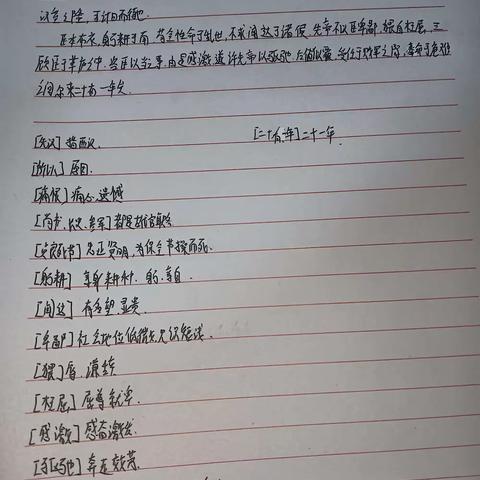 汉室之隆，可计日而待也。
臣本布衣，躬耕于南阳，苟全性命于乱世，不求闻达于诸侯。先帝不以臣卑鄙，猥自枉屈，三
顾臣于草庐之中，咨臣以当世之事，由是感激，遂许先帝以驱驰。后值倾覆，受任于败军之际，奉命于危难
之间，尔来二十有一年矣。
[先汉] 指西汉 [二十有一年] 二十一年
[所以] 原因
[痛恨] 痛心、遗憾
[尚书、长史、参军] 都是官职
[贞良死节] 忠正贤明，为保全节操而死.
[躬耕] 亲身耕种. 躬，亲自
[闻达] 有名望显贵.
[卑鄙] 社会地位低微，见识短浅.
[猥] 辱，谦辞
[枉屈] 屈尊就卑.
[感激] 感奋激发.
[驱驰] 奔走效劳.